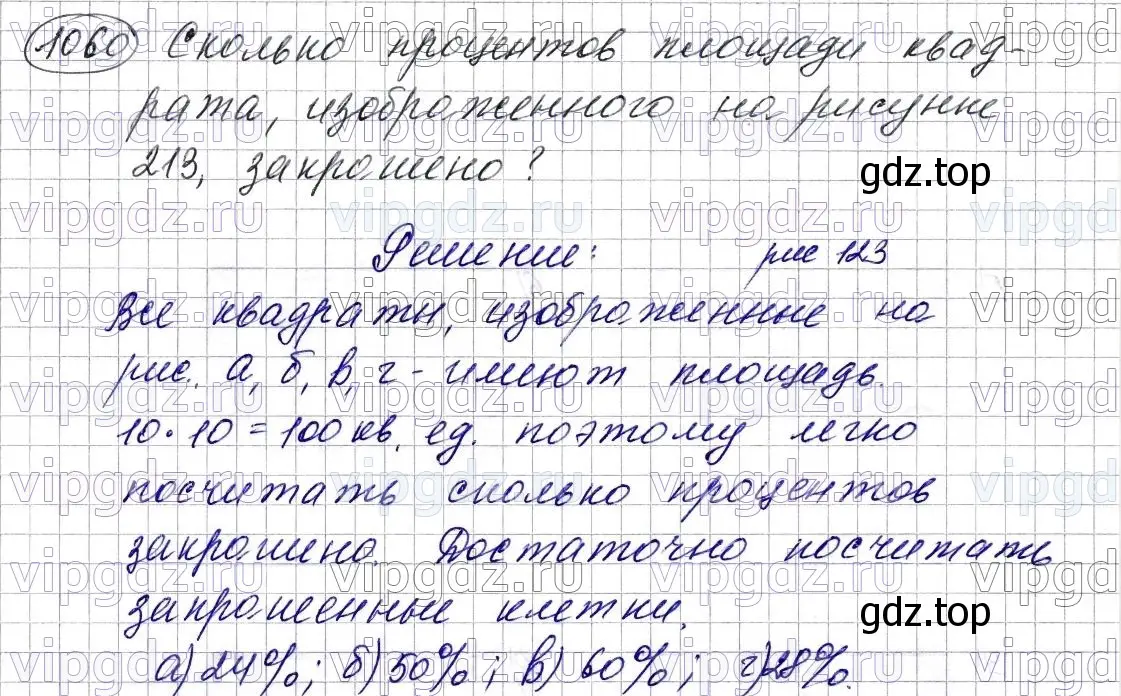 1060 Сколько процентов площади квад-
рата, изображенного на рисунке
213, закрашено?
gdz.top
Решение: рис 123
Все квадраты, изображенные на
рис. а, б, в, г - имеют площадь.
10·10=100 кв. ед. поэтому легко
посчитать сколько процентов
закрашено. Достаточно посчитать
закрашенные клетки.
gdz.top
а) 24%; б) 50%; в) 60%; г) 28%.
vipgdz.ru